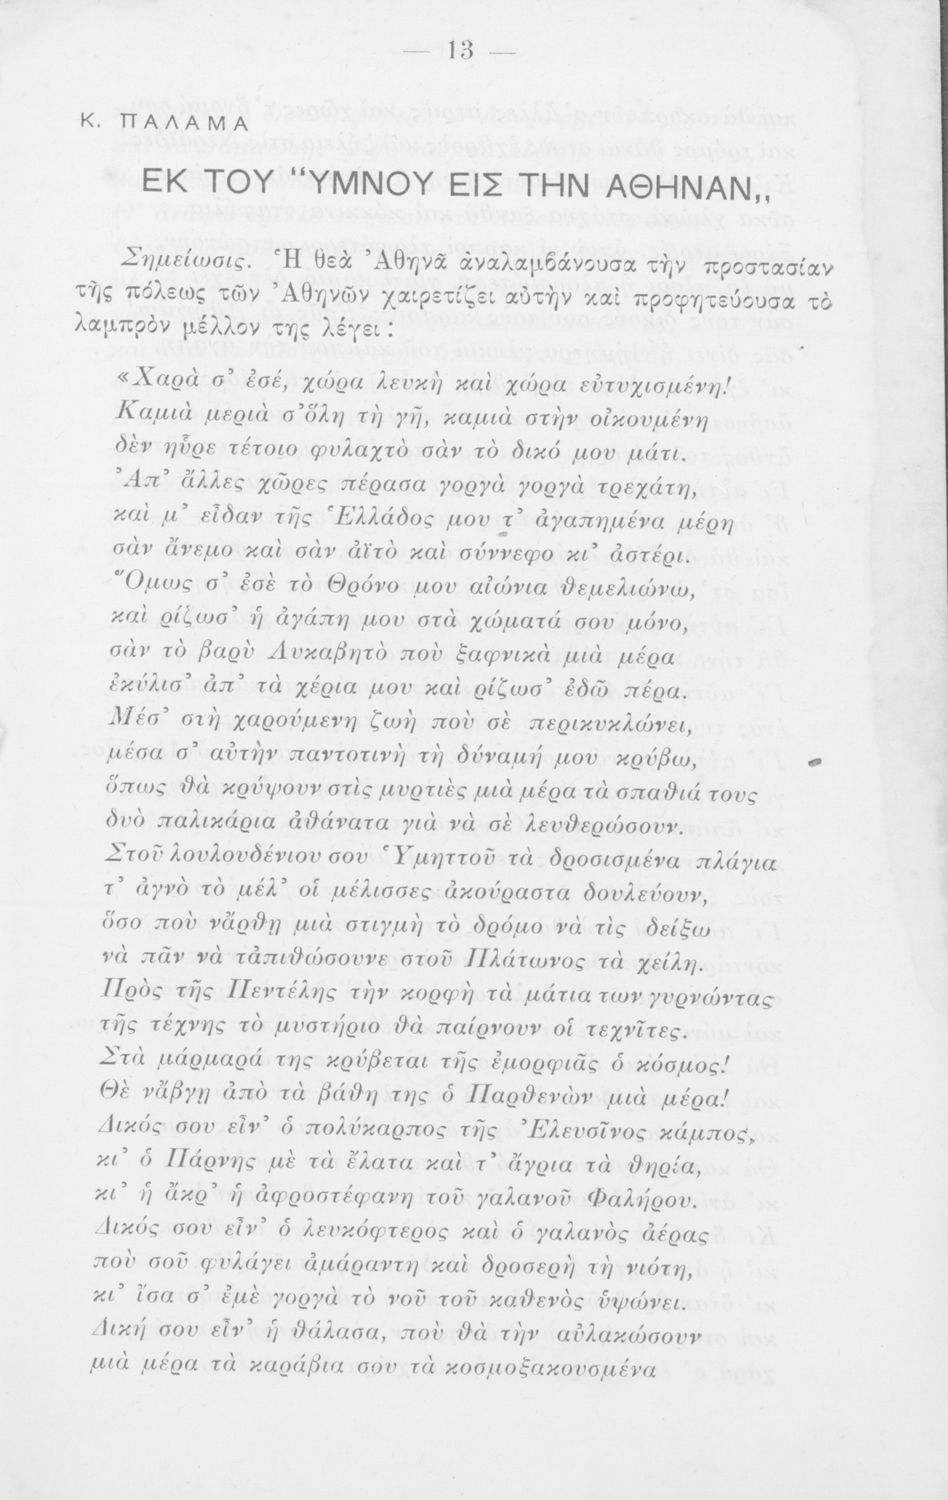 — 13 —
Κ. ΠΑΛΑΜΑ
ΕΚ ΤΟΥ “ΥΜΝΟΥ ΕΙΣ ΤΗΝ ΑΘΗΝΑΝ„
Σημείωσις. Ἡ θεὰ Ἀθηνᾶ ἀναλαμβάνουσα τὴν προστασίαν
τῆς πόλεως τῶν Ἀθηνῶν χαιρετίζει αὐτὴν καὶ προφητεύουσα τὸ
λαμπρὸν μέλλον της λέγει :
«Χαρὰ σ’ ἐσέ, χώρα λευκὴ καὶ χώρα εὐτυχισμένη!
Καμιὰ μεριὰ σ’ὅλη τὴ γῆ, καμιὰ στὴν οἰκουμένη
δὲν ηὗρε τέτοιο φυλαχτὸ σὰν τὸ δικό μου μάτι.
Ἀπ’ ἄλλες χῶρες πέρασα γοργὰ γοργὰ τρεχάτη,
καὶ μ’ εἶδαν τῆς Ἑλλάδος μου τ’ ἀγαπημένα μέρη
σὰν ἄνεμο καὶ σὰν ἀϊτὸ καὶ σύννεφο κι’ ἀστέρι.
Ὅμως σ’ ἐσὲ τὸ Θρόνο μου αἰώνια θεμελιώνω,
καὶ ρίζωσ’ ἡ ἀγάπη μου στὰ χώματά σου μόνο,
σὰν τὸ βαρὺ Λυκαβητὸ ποὺ ξαφνικὰ μιὰ μέρα
ἐκύλισ’ ἀπ’ τὰ χέρια μου καὶ ρίζωσ’ ἐδῶ πέρα.
Μέσ’ στὴ χαρούμενη ζωὴ ποὺ σὲ περικυκλώνει,
μέσα σ’ αὐτὴν παντοτινὴ τὴ δύναμή μου κρύβω,
ὅπως θὰ κρύψουν στὶς μυρτιὲς μιὰ μέρα τὰ σπαθιά τους
δυὸ παλικάρια ἀθάνατα γιὰ νὰ σὲ λευθερώσουν.
Στοῦ λουλουδένιου σου Ὑμηττοῦ τὰ δροσισμένα πλάγια
τ’ ἁγνὸ τὸ μέλ’ οἱ μέλισσες ἀκούραστα δουλεύουν,
ὅσο ποὺ νἄρθῃ μιὰ στιγμὴ τὸ δρόμο νὰ τὶς δείξω
νὰ πᾶν νὰ τἀπιθώσουνε στοῦ Πλάτωνος τὰ χείλη.
Πρὸς τῆς Πεντέλης τὴν κορφὴ τὰ μάτια των γυρνώντας
τῆς τέχνης τὸ μυστήριο θὰ παίρνουν οἱ τεχνῖτες.
Στὰ μάρμαρά της κρύβεται τῆς ἐμορφιᾶς ὁ κόσμος!
Θὲ νἄβγῃ ἀπὸ τὰ βάθη της ὁ Παρθενὼν μιὰ μέρα!
Δικός σου εἶν’ ὁ πολύκαρπος τῆς Ἐλευσῖνος κάμπος,
κι’ ὁ Πάρνης μὲ τὰ ἔλατα καὶ τ’ ἄγρια τὰ θηρία,
κι’ ἡ ἄκρ’ ἡ ἀφροστέφανη τοῦ γαλανοῦ Φαλήρου.
Δικός σου εἶν’ ὁ λευκόφτερος καὶ ὁ γαλανὸς ἀέρας
ποὺ σοῦ φυλάγει ἀμάραντη καὶ δροσερὴ τὴ νιότη,
κι’ ἴσα σ’ ἐμὲ γοργὰ τὸ νοῦ τοῦ καθενὸς ὑψώνει.
Δική σου εἶν’ ἡ θάλασα, ποὺ θὰ τὴν αὐλακώσουν
μιὰ μέρα τὰ καράβια σου τὰ κοσμοξακουσμένα